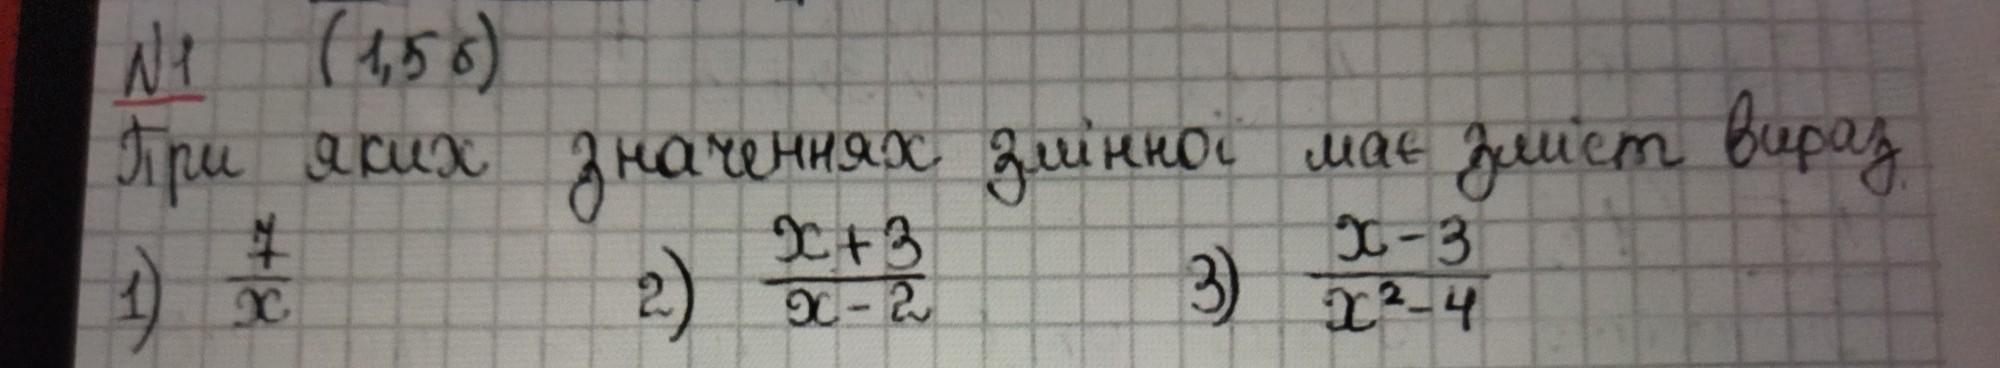 N1 (1,5 б)
При яких значеннях змінної має зміст вираз
1) 7/x 2) x+3/x-2 3) x-3/x²-4